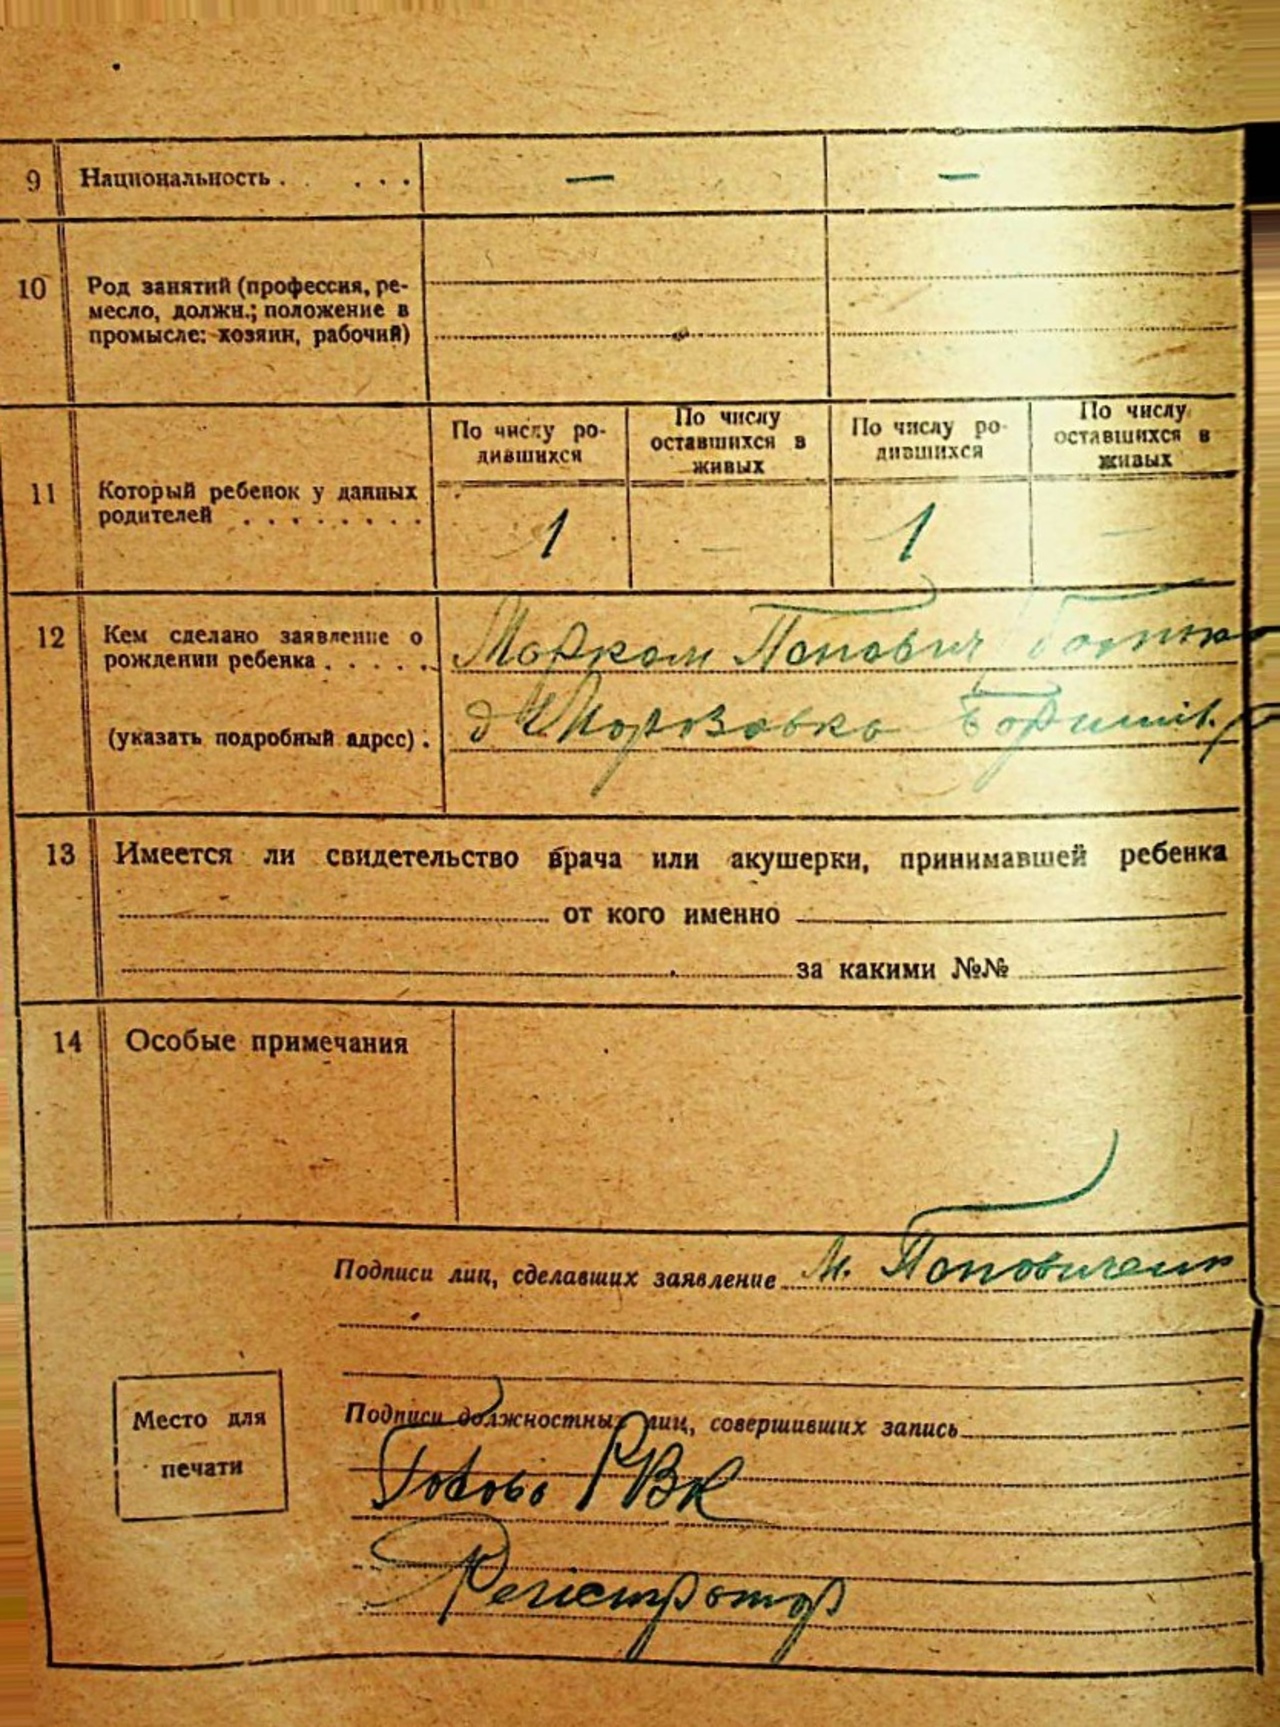 9 Национальность . . . . . — —
10 Род занятий (профессия, ре-
месло, должн.; положение в
промысле: хозяин, рабочий)
11 Который ребенок у данных
родителей . . . . . . . .
По числу ро-
дившихся
По числу
оставшихся в
живых
По числу ро-
дившихся
По числу
оставшихся в
живых
1 — 1 —
12 Кем сделано заявление о
рождении ребенка . . . . .
(указать подробный адрес) .
Марком Попович
13 Имеется ли свидетельство врача или акушерки, принимавшей ребенка
от кого именно
за какими №№
14 Особые примечания
Подписи лиц, сделавших заявление М.
Место для
печати
Подписи должностных лиц, совершивших запись
Голова РВК
Регістратор